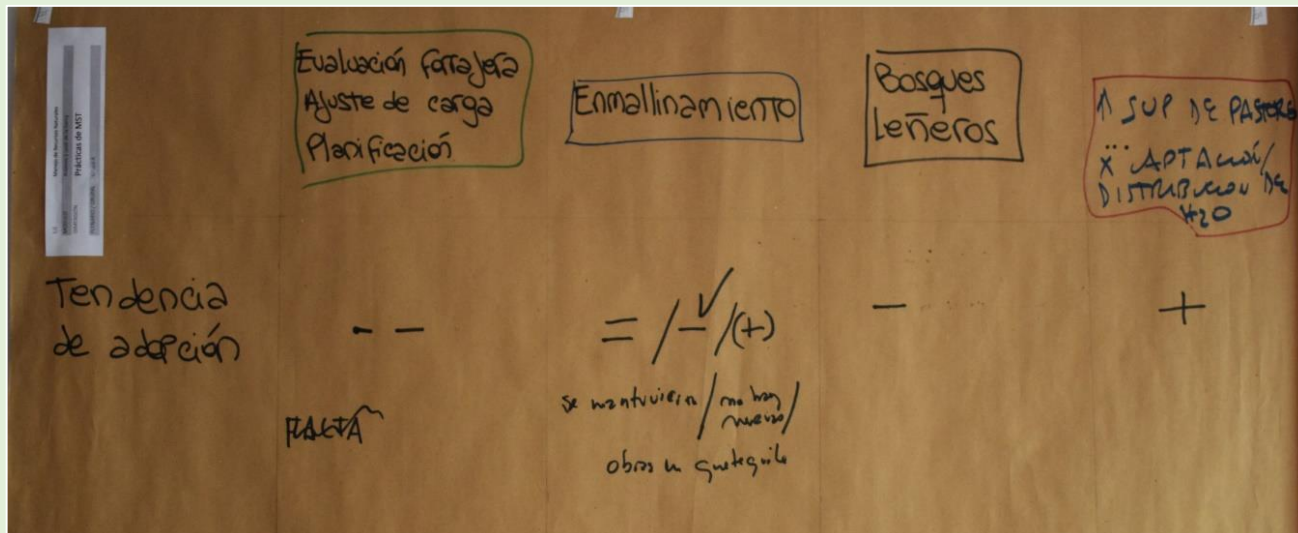 Prácticas de MST
Evaluación forrajera
Ajuste de carga
Planificación
Enmallinamiento
Bosques
Leñeros
↑ SUP DE PASTOREO
DISTRIBUCION DE
H2O
Tendencia
de adopción
- -
= / - / (+)
-
+
se mantuvieron / no hay
nuevas /
obras en